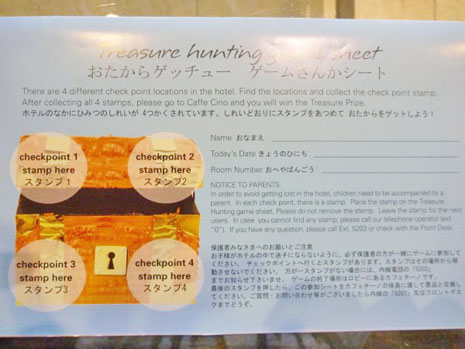 Treasure hunting game sheet
おたからゲッチュー　ゲームさんかシート
There are 4 different check point locations in the hotel. Find the locations and collect the check point stamp.
After collecting all 4 stamps, please go to Caffe Cino and you will win the Treasure Prize.
ホテルのなかにひみつのしれいが 4つかくされています。しれいどおりにスタンプをあつめて おたからをゲットしよう！
checkpoint 1
stamp here
スタンプ1
checkpoint 2
stamp here
スタンプ2
checkpoint 3
stamp here
スタンプ3
checkpoint 4
stamp here
スタンプ4
Name おなまえ
Today's Date きょうのひにち
Room Number おへやばんごう
NOTICE TO PARENTS
In order to avoid getting lost in the hotel, children need to be accompanied by a
parent. In each check point, there is a stamp. Place the stamp on the Treasure
Hunting game sheet. Please do not remove the stamp. Leave the stamp for the next
users. In case you cannot find any stamp, please call our telephone operator (ext
"0"). If you have any question, please call Ext. 5203 or check with the Front Desk.
保護者みなさまへのお願いとご注意
お子様がホテルの中で迷子にならないように、必ず保護者の方が一緒にゲームに参加して
ください。チェックポイントへ行くとスタンプがあります。スタンプはその場所から移
動させないでください。万が一スタンプがない場合には、内線電話の
までお知らせ下さいませ。ゲームの終了場所はロビーにあるカフェチーノです。
最後のスタンプを押したら、この参加シートをカフェチーノの係員に渡して景品と交換し
てください。ご質問・お問い合わせ等がございましたら内線の「5203」又はフロントデス
クまでどうぞ。